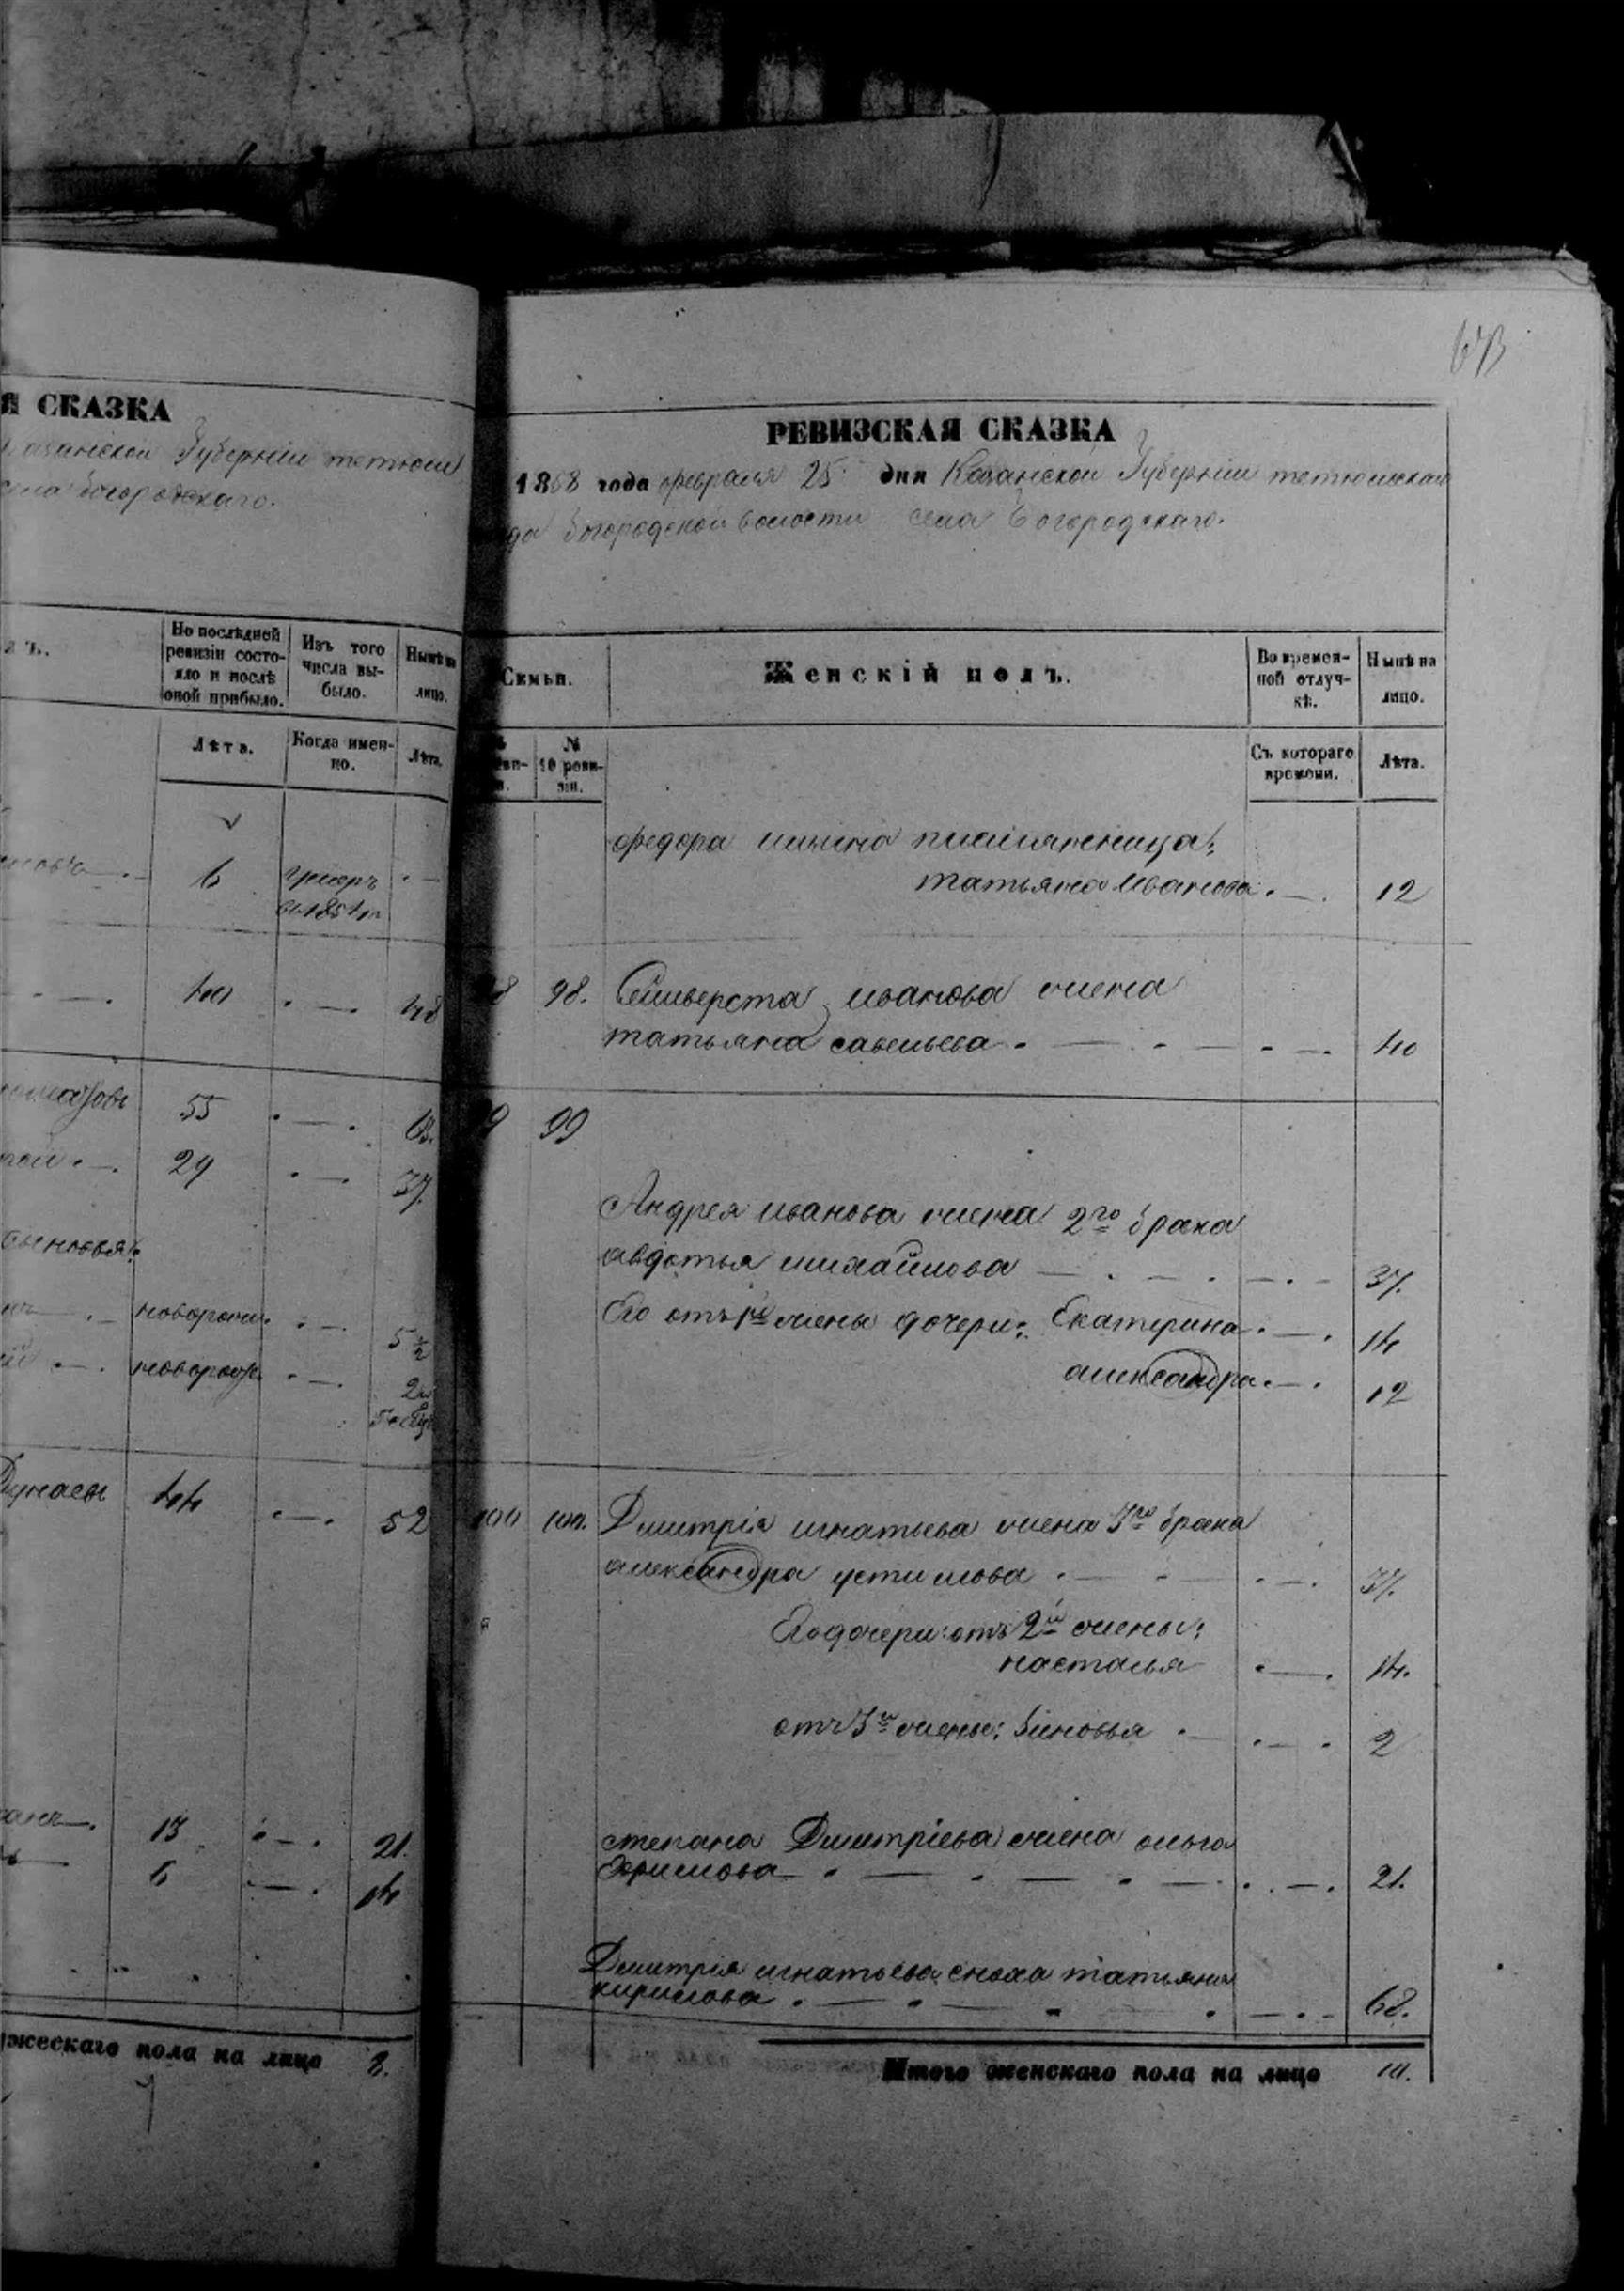 673
СКАЗКА
Губерніи тетюш
села Богородскаго.
По послѣдней
ревизіи состо-
яло и послѣ
оной прибыло.
Изъ того
числа вы-
было.
Нынѣ на
лицо.
Лѣта.
Когда имен-
но.
Лѣта.
6
умеръ
въ 1854
40 48
55 63.
29 37.
сыновья:
новорожд. 5½
новорожд. 2
44 52
13 21.
6 14
жескаго пола на лицо 8.
РЕВИЗСКАЯ СКАЗКА
1858 года февраля 25 дня Казанской Губерніи тетюшскаго
да Богородской волости села Богородскаго.
Семьи.
Женскій полъ.
Во времен-
ной отлуч-
кѣ.
Нынѣ на
лицо.
№
10 реви-
зіи.
Съ котораго
времени.
Лѣта.
федора ильина племянница:
татьяна Иванова. 12
98. Селиверста иванова жена
татьяна савельева 40
99
Андрея иванова жена 2го брака
авдотья михайлова 37.
Его отъ 1й жены дочери: Екатерина 14
александра 12
100 100. Дмитрія игнатьева жена 3го брака
александра устимова 37.
Его дочери: отъ 2й жены:
настасья 14.
отъ 3й жены: Зиновья 2
степана Дмитріева жена ольга
Ефимова 21.
Дмитрія игнатьева сноха татьяна
кирилова 68.
Итого женскаго пола на лицо 10.